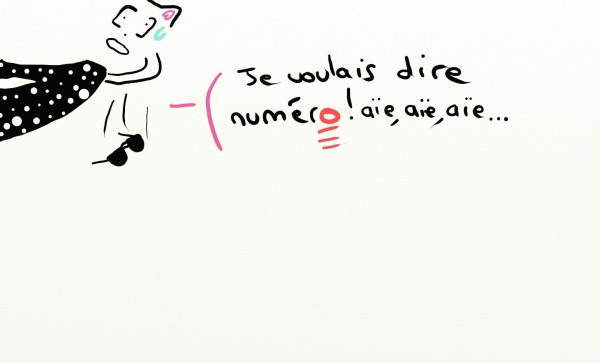 Je voulais dire
numéro ! aïe, aïe, aïe...